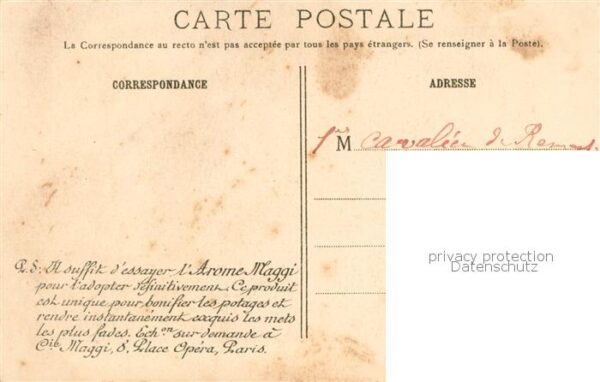 CARTE POSTALE
La Correspondance au recto n'est pas acceptée par tous les pays étrangers. (Se renseigner à la Poste).
CORRESPONDANCE
ADRESSE
M Cavalier de
privacy protection
Datenschutz
P.S. Il suffit d'essayer l'Arome Maggi
pour l'adopter définitivement. Ce produit
est unique pour bonifier les potages et
rendre instantanément exquis les mets
les plus fades. Echon sur demande à
Cie Maggi, 8, Place Opéra, Paris.